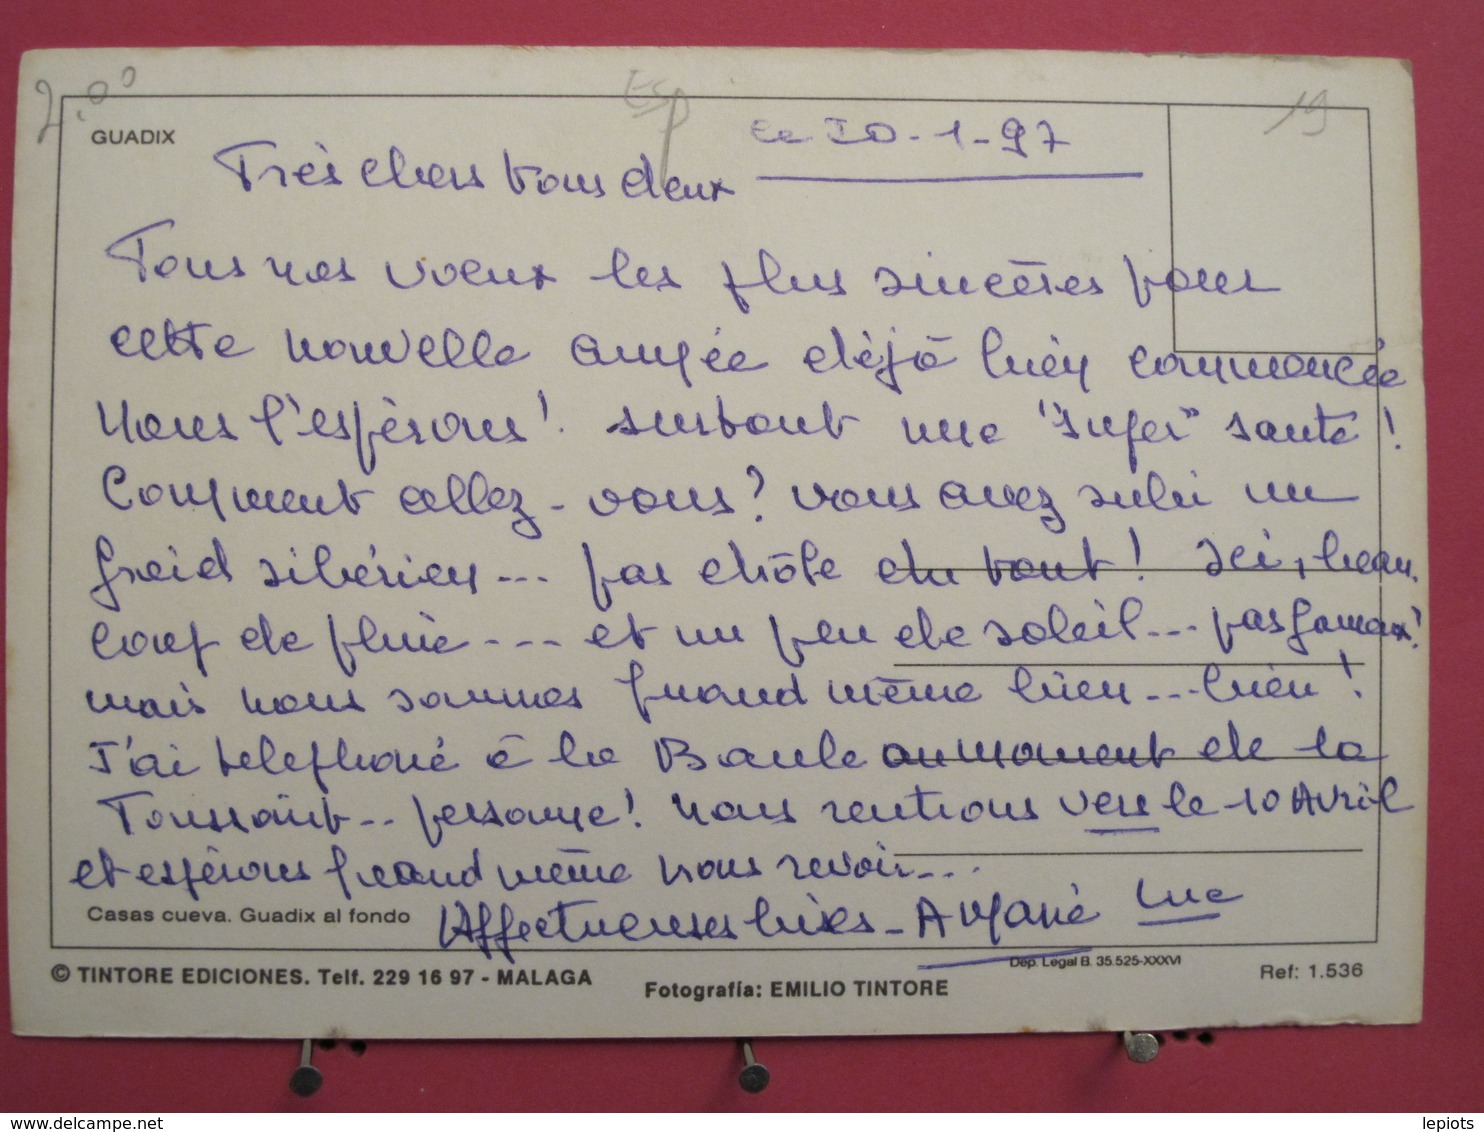 2.00
Esp
19
GUADIX
le 20-1-97
Très chers tous deux
Tous nos voeux les plus sincères pour
cette nouvelle année déjà bien commencée
nous l'espérons! surtout une "super" santé!
Comment allez-vous? vous avez subi un
froid sibérien... pas drôle du tout! Ici, beau-
coup de pluie.... et un peu de soleil... pas fameux!
mais nous sommes quand même bien... bien!
J'ai telephoné à la Baule au moment de la
Toussaint.. personne! nous rentrons vers le 10 Avril
et espérons quand même vous revoir...
Affectueuses bises -
Luc
Casas cueva. Guadix al fondo
© TINTORE EDICIONES. Telf. 229 16 97 - MALAGA
Fotografía: EMILIO TINTORE
Dep. Legal B. 35.525-XXXVI
Ref: 1.536
delcampe.net
lepiots